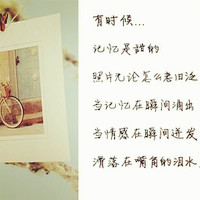 有时候...
记忆是甜的
照片无论怎么老旧泛
当记忆在瞬间涌出
当情感在瞬间迸发
滑落在嘴角的泪水